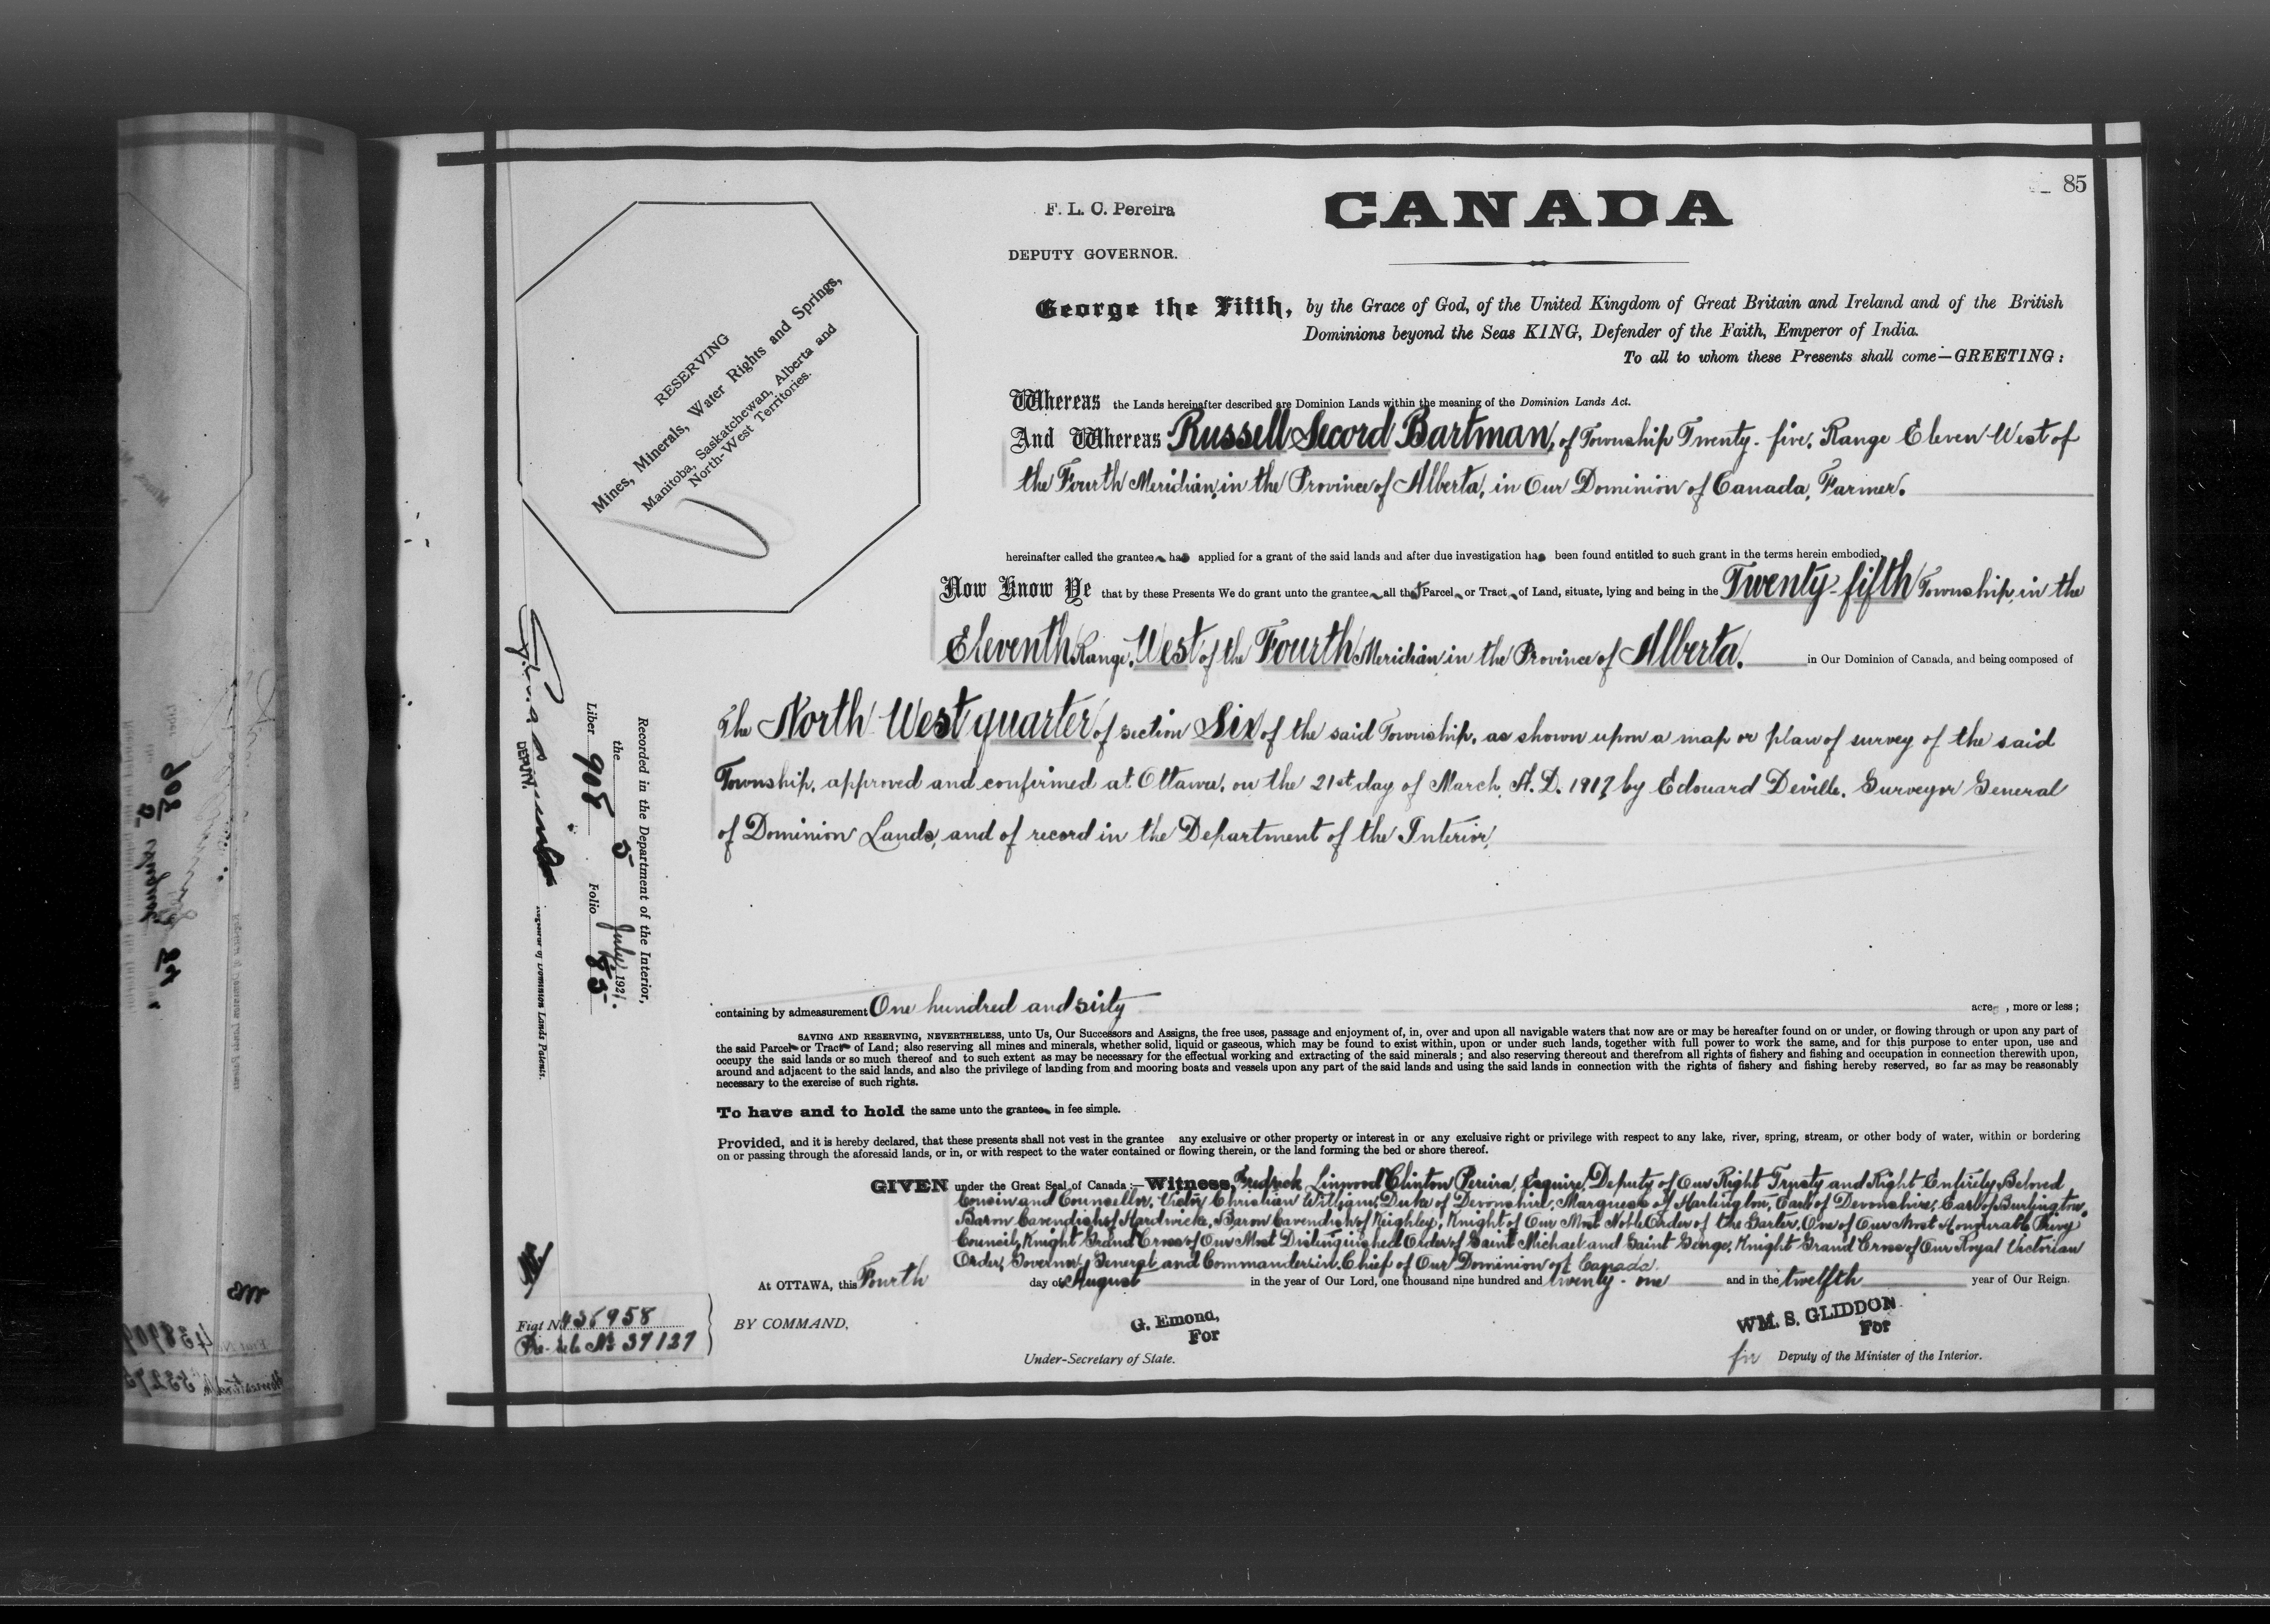 85
F. L. C. Pereira
CANADA
DEPUTY GOVERNOR.
RESERVING
Mines, Minerals, Water Rights and Springs,
Manitoba, Saskatchewan, Alberta and
North-West Territories.
George the Fifth, by the Grace of God, of the United Kingdom of Great Britain and Ireland and of the British
Dominions beyond the Seas KING, Defender of the Faith, Emperor of India.
To all to whom these Presents shall come—GREETING:
Whereas the Lands hereinafter described are Dominion Lands within the meaning of the Dominion Lands Act.
And Whereas Russell Secord Bartman, of Township Twenty-five, Range Eleven West of
the Fourth Meridian, in the Province of Alberta, in Our Dominion of Canada, Farmer.
hereinafter called the grantee has applied for a grant of the said lands and after due investigation has been found entitled to such grant in the terms herein embodied,
Now Know Ye that by these Presents We do grant unto the grantee all that Parcel or Tract of Land, situate, lying and being in the Twenty-fifth Township, in the
Eleventh Range, West of the Fourth Meridian in the Province of Alberta. in Our Dominion of Canada, and being composed of
The North West quarter of section Six of the said Township, as shown upon a map or plan of survey of the said
Township, approved and confirmed at Ottawa, on the 21st day of March, A. D. 1917, by Edouard Deville, Surveyor General
of Dominion Lands, and of record in the Department of the Interior,
containing by admeasurement One hundred and sixty acres, more or less;
SAVING AND RESERVING, NEVERTHELESS, unto Us, Our Successors and Assigns, the free uses, passage and enjoyment of, in, over and upon all navigable waters that now are or may be hereafter found on or under, or flowing through or upon any part of
the said Parcel or Tract of Land; also reserving all mines and minerals, whether solid, liquid or gaseous, which may be found to exist within, upon or under such lands, together with full power to work the same, and for this purpose to enter upon, use and
occupy the said lands or so much thereof and to such extent as may be necessary for the effectual working and extracting of the said minerals; and also reserving thereout and therefrom all rights of fishery and fishing and occupation in connection therewith upon,
around and adjacent to the said lands, and also the privilege of landing from and mooring boats and vessels upon any part of the said lands and using the said lands in connection with the rights of fishery and fishing hereby reserved, so far as may be reasonably
necessary to the exercise of such rights.
To have and to hold the same unto the grantee in fee simple.
Provided, and it is hereby declared, that these presents shall not vest in the grantee any exclusive or other property or interest in or any exclusive right or privilege with respect to any lake, river, spring, stream, or other body of water, within or bordering
on or passing through the aforesaid lands, or in, or with respect to the water contained or flowing therein, or the land forming the bed or shore thereof.
GIVEN under the Great Seal of Canada:—Witness, Fredrick Linwood Clinton Pereira, Esquire, Deputy of Our Right Trusty and Right Entirely Beloved
Cousin and Counsellor, Victor Christian William, Duke of Devonshire, Marquess of Hartington, Earl of Devonshire, Earl of Burlington,
Baron Cavendish of Hardwicke, Baron Cavendish of Keighley, Knight of Our Most Noble Order of the Garter, One of Our Most Honourable Privy
Council, Knight Grand Cross of Our Most Distinguished Order of Saint Michael and Saint George, Knight Grand Cross of Our Royal Victorian
Order, Governor General and Commander in Chief of Our Dominion of Canada.
At OTTAWA, this Fourth day of August in the year of Our Lord, one thousand nine hundred and twenty-one and in the twelfth year of Our Reign.
BY COMMAND,
G. Emond,
For
Under-Secretary of State.
WM. S. GLIDDON
For
for Deputy of the Minister of the Interior.
Recorded in the Department of the Interior,
the 5 July 1921.
Liber 908 Folio 85
DEPUTY
Registrar of Dominion Lands Patents.
Fiat No. 436958
Pre-. No 37127